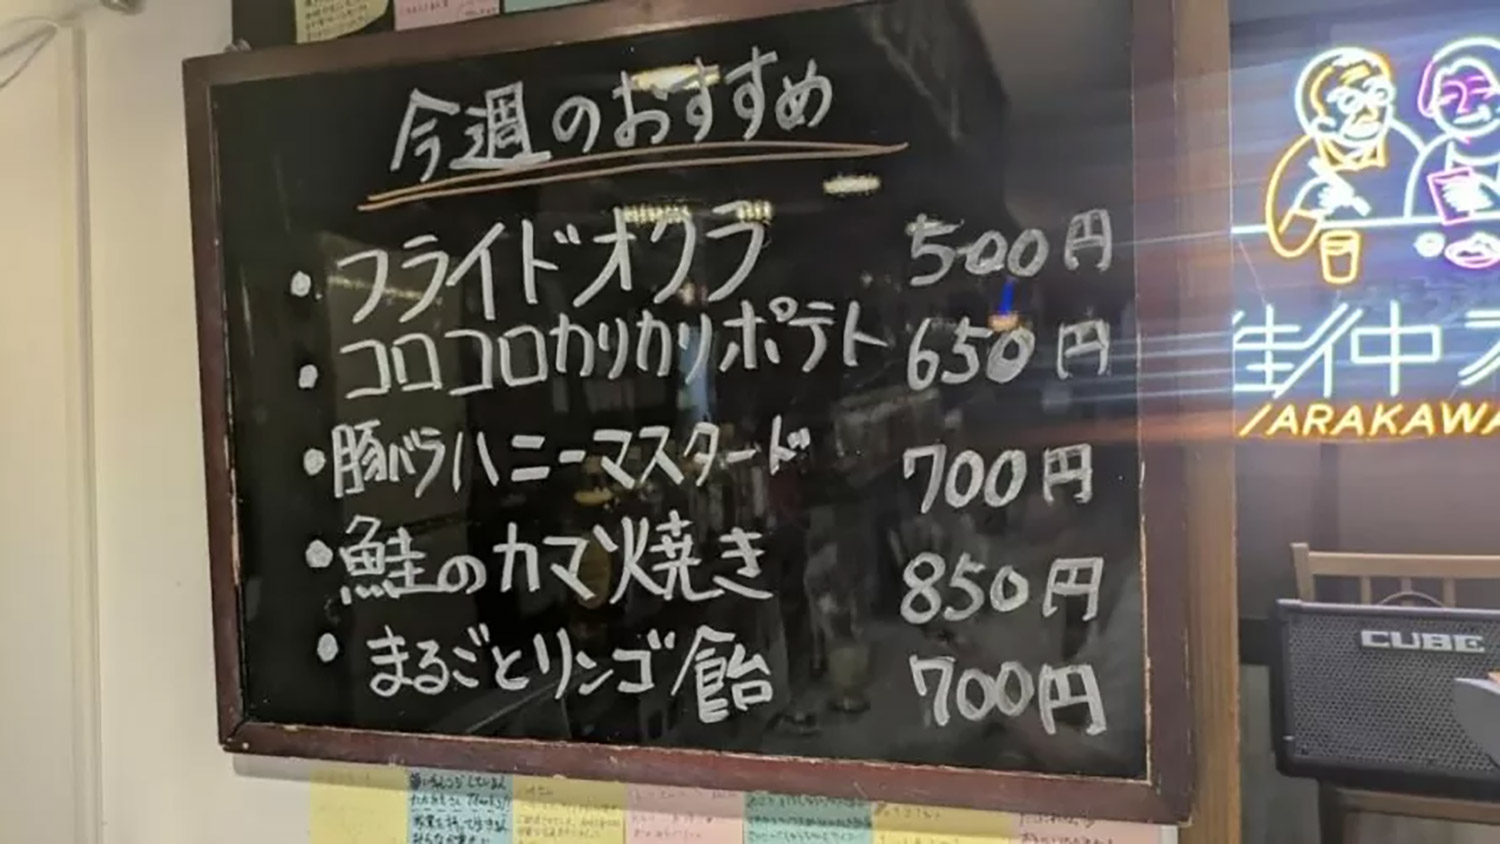 今週のおすすめ
・フライドオクラ 500円
・コロコロカリカリポテト 650円
・豚バラハニーマスタード 700円
・鮭のカマ焼き 850円
・まるごとリンゴ飴 700円
/ARAKAWA
CUBE